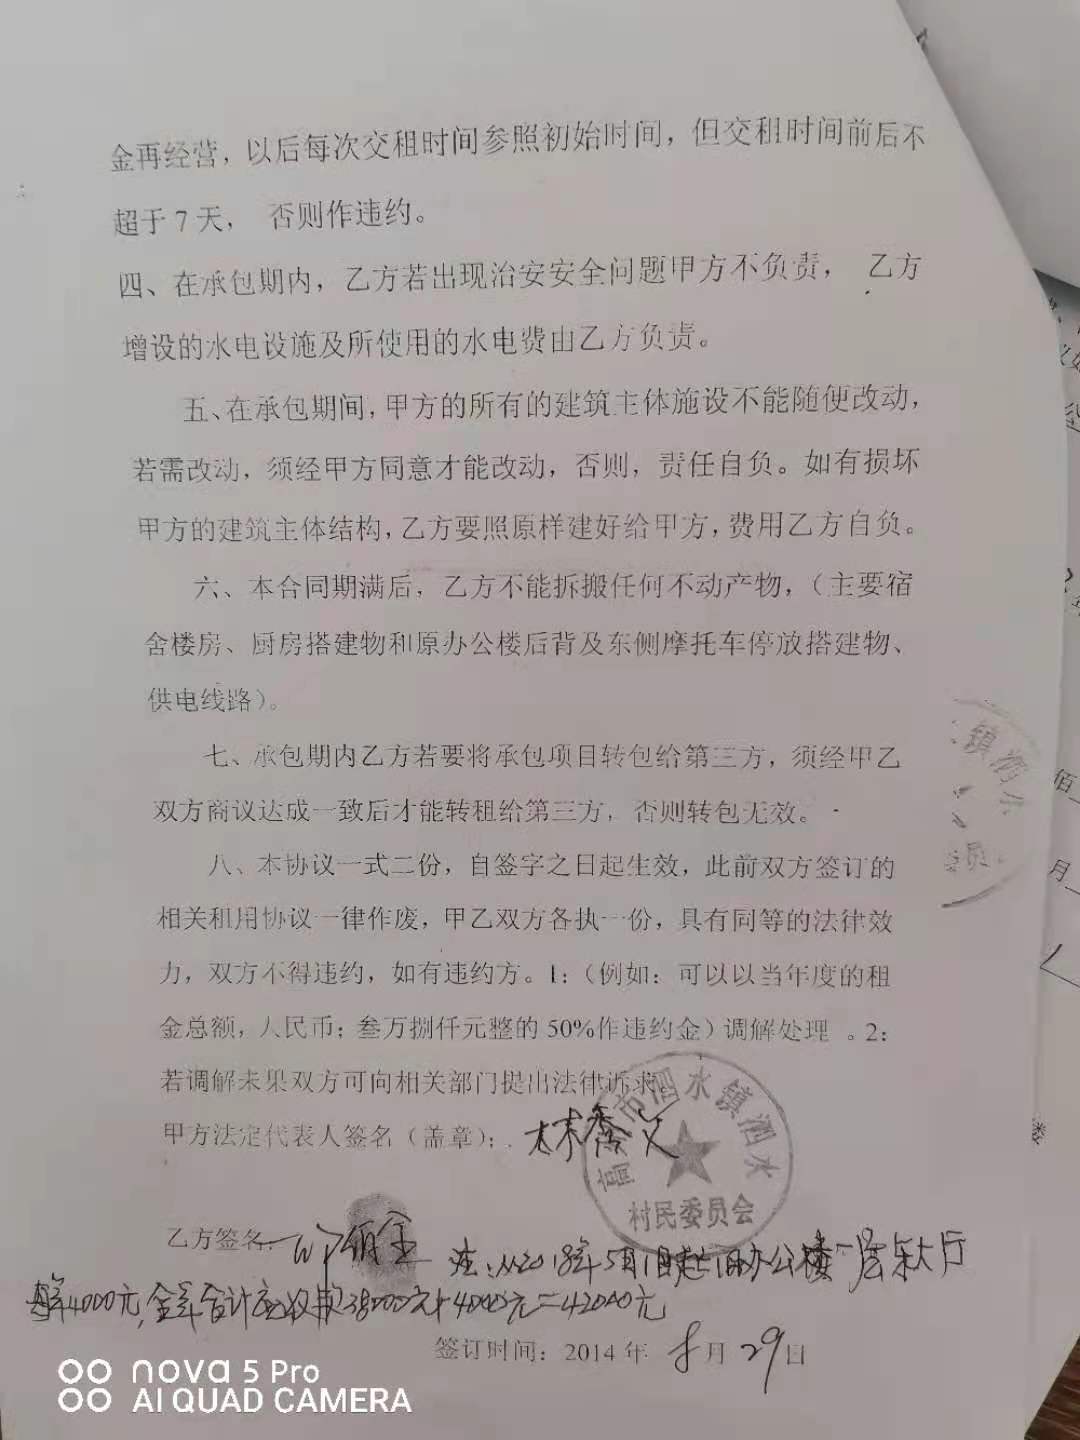 金再经营，以后每次交租时间参照初始时间，但交租时间前后不
超于7天， 否则作违约。
四、在承包期内，乙方若出现治安安全问题甲方不负责， 乙方
增设的水电设施及所使用的水电费由乙方负责。
五、在承包期间，甲方的所有的建筑主体施设不能随便改动，
若需改动，须经甲方同意才能改动，否则，责任自负。如有损坏
甲方的建筑主体结构，乙方要照原样建好给甲方，费用乙方自负。
六、本合同期满后，乙方不能拆搬任何不动产物，（主要宿
舍楼房、厨房搭建物和原办公楼后背及东侧摩托车停放搭建物、
供电线路）。
七、承包期内乙方若要将承包项目转包给第三方，须经甲乙
双方商议达成一致后才能转租给第三方，否则转包无效。
八、本协议一式二份，自签字之日起生效，此前双方签订的
相关租用协议一律作废，甲乙双方各执一份，具有同等的法律效
力，双方不得违约，如有违约方。1：（例如：可以以当年度的租
金总额，人民币；叁万捌仟元整的50%作违约金）调解处理 。2：
若调解未果双方可向相关部门提出法律诉求。
甲方法定代表人签名（盖章）：
市泗水镇泗水
村民委员会
乙方签名：
注：从2018年5月1日起旧办公楼一层东大厅
每年4000元，全年合计应收款38000元+4000元=42000元
签订时间：2014年 8月 29日
镇泗
员
佰
月
nova 5 Pro
AI QUAD CAMERA